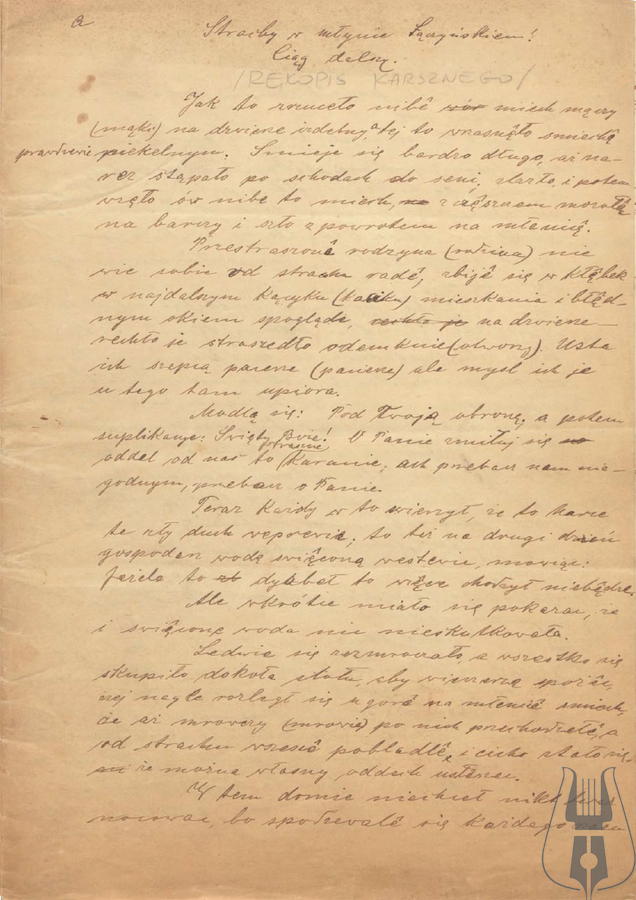 a
Strachy w młynie Łążyńskiem!
Ciąg dalszy.
/RĘKOPIS KARSZNEGO/
Jak to rzucęło nibê wór miech mączy
(mąki) na dzwierze izdebny a tej to wrasnęło smiechę
prawdziwie piekelnym. Smieje się bardzo długo, aż na-
rez stąpało po schodach do seni, zlazło, i potem
wzęło ów nibe to miech, na z cęższem
na barczy i szło z powrotem na młenicę.
Przestraszonê rodzyna (rodzina) nie
wie sobie od strachu radê, zbijê się w kłębek
w najdalszym kącyku (kątku) mieszkania i błęd-
nym okiem spoglądo, na dzwierze
rechło se straszedło odemknie (otworzy). Usta
ich szepią pacerze (pacierze) ale mysl ich je
u tego tam upiora.
Modlą się: Pod Twoją obronę, a potem
suplikacyje: Święty Boże! O Panie zmiłuj się
straszné
oddel od nas to karanie, ach przebacz nam nie-
godnym, przebacz o Panie.
Teraz każdy w to wierzył, że to harce
te zły duch weprewia; to też na drugi dzień
gospodarz wodę swięconą westewie, mowiąc:
Jeżele to dyabeł to więce chodzył niebędze.
Ale wkrótce miało się pokazac, że
i swięcone woda nic nieskutkowała.
Ledwie się rozmroczało, a wszestko się
skupiło dokoła stołu, aby wieczerzą
nagle rozlegt się u górê na młenicê smiech,
że aż mrowczy (mrowie) po nich przechodzełê, a
od strachu wszescê pobladlê, i cicho stało się,
że można własny oddech usłeszec.
W tem domie niechcieł nikt
nocowac, bo spodzewalê się każdego